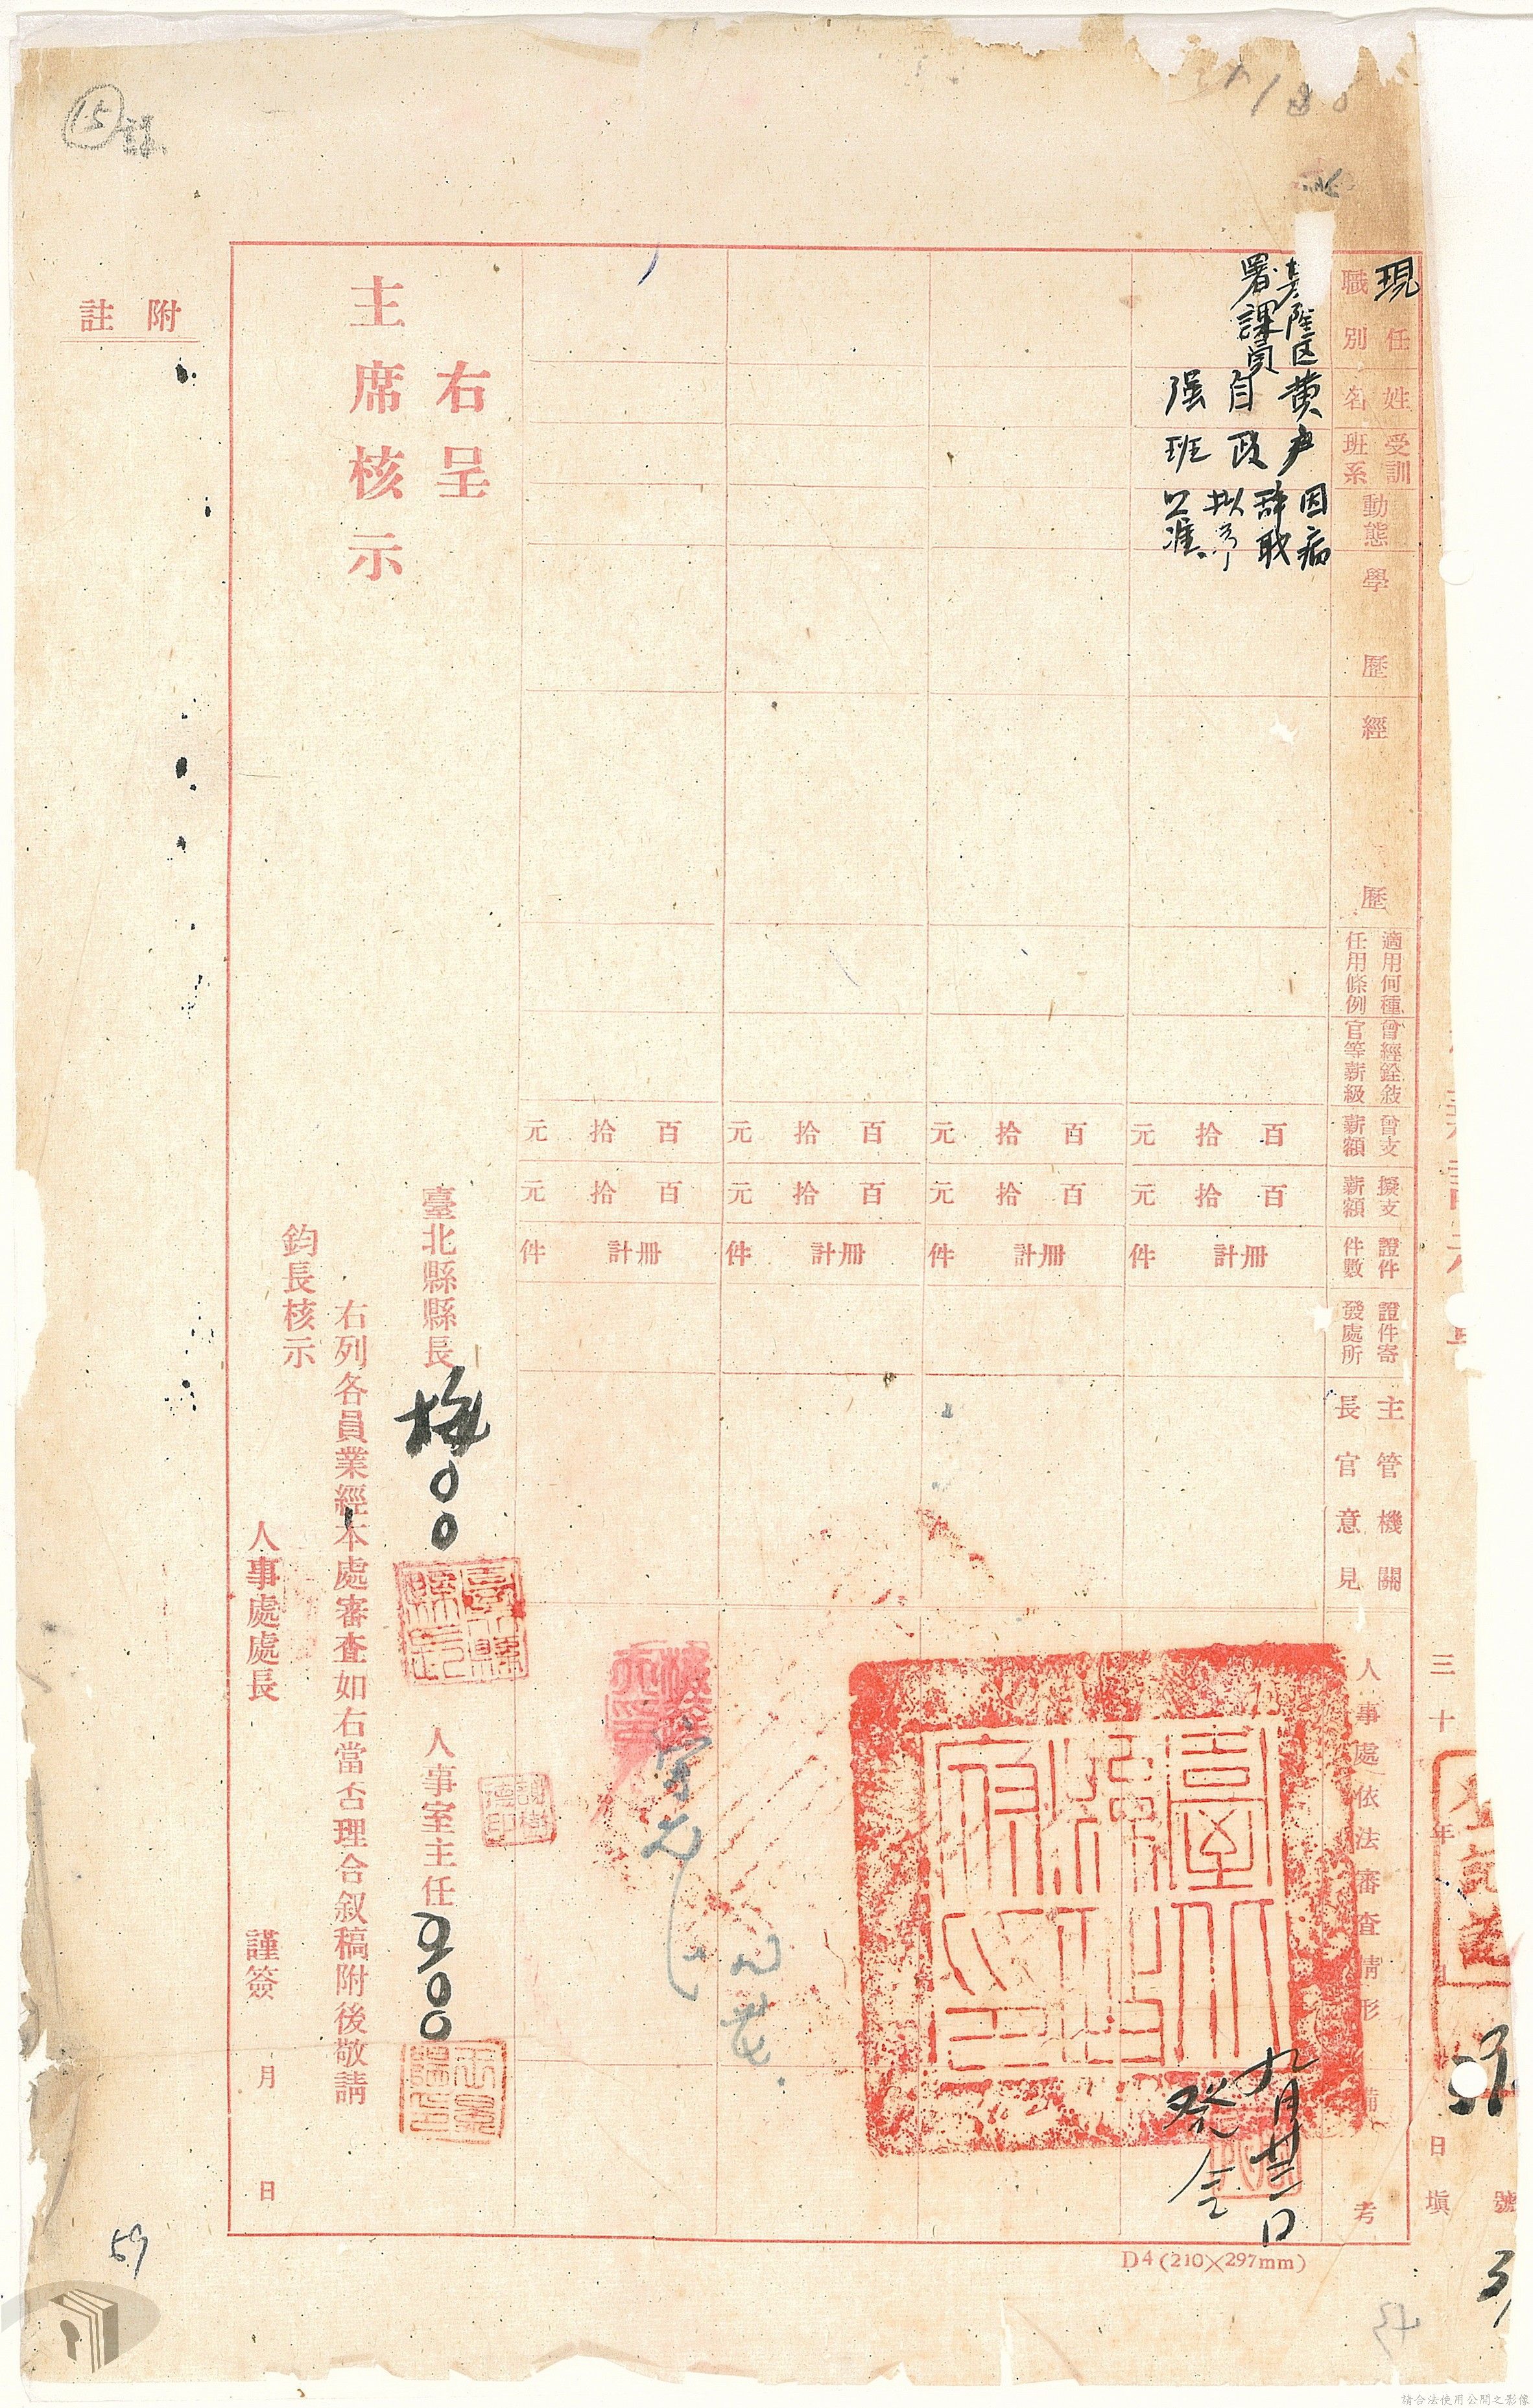 15
三十 年 月 日 填
號
現任
職別
姓名
受訓班系
動態
學歷
經歷
適用何種任用條例
曾經銓敍官等薪級
曾支薪額
擬支薪額
證件件數
證件寄發處所
主管機關長官意見
人事處依法審查情形
備考
基隆区署課員
黄自强
户政班
因病辞职拟予照准
九月廿三日
發令
臺北縣政府印
百拾元
百拾元
冊計件
百拾元
百拾元
冊計件
百拾元
百拾元
冊計件
百拾元
百拾元
冊計件
右呈
主席核示
臺北縣縣長 梅00
人事室主任 000
右列各員業經本處審查如右當否理合敍稿附後敬請
鈞長核示
人事處處長 謹簽 月 日
附註
D4(210×297mm)
59
請合法使用公開之影像